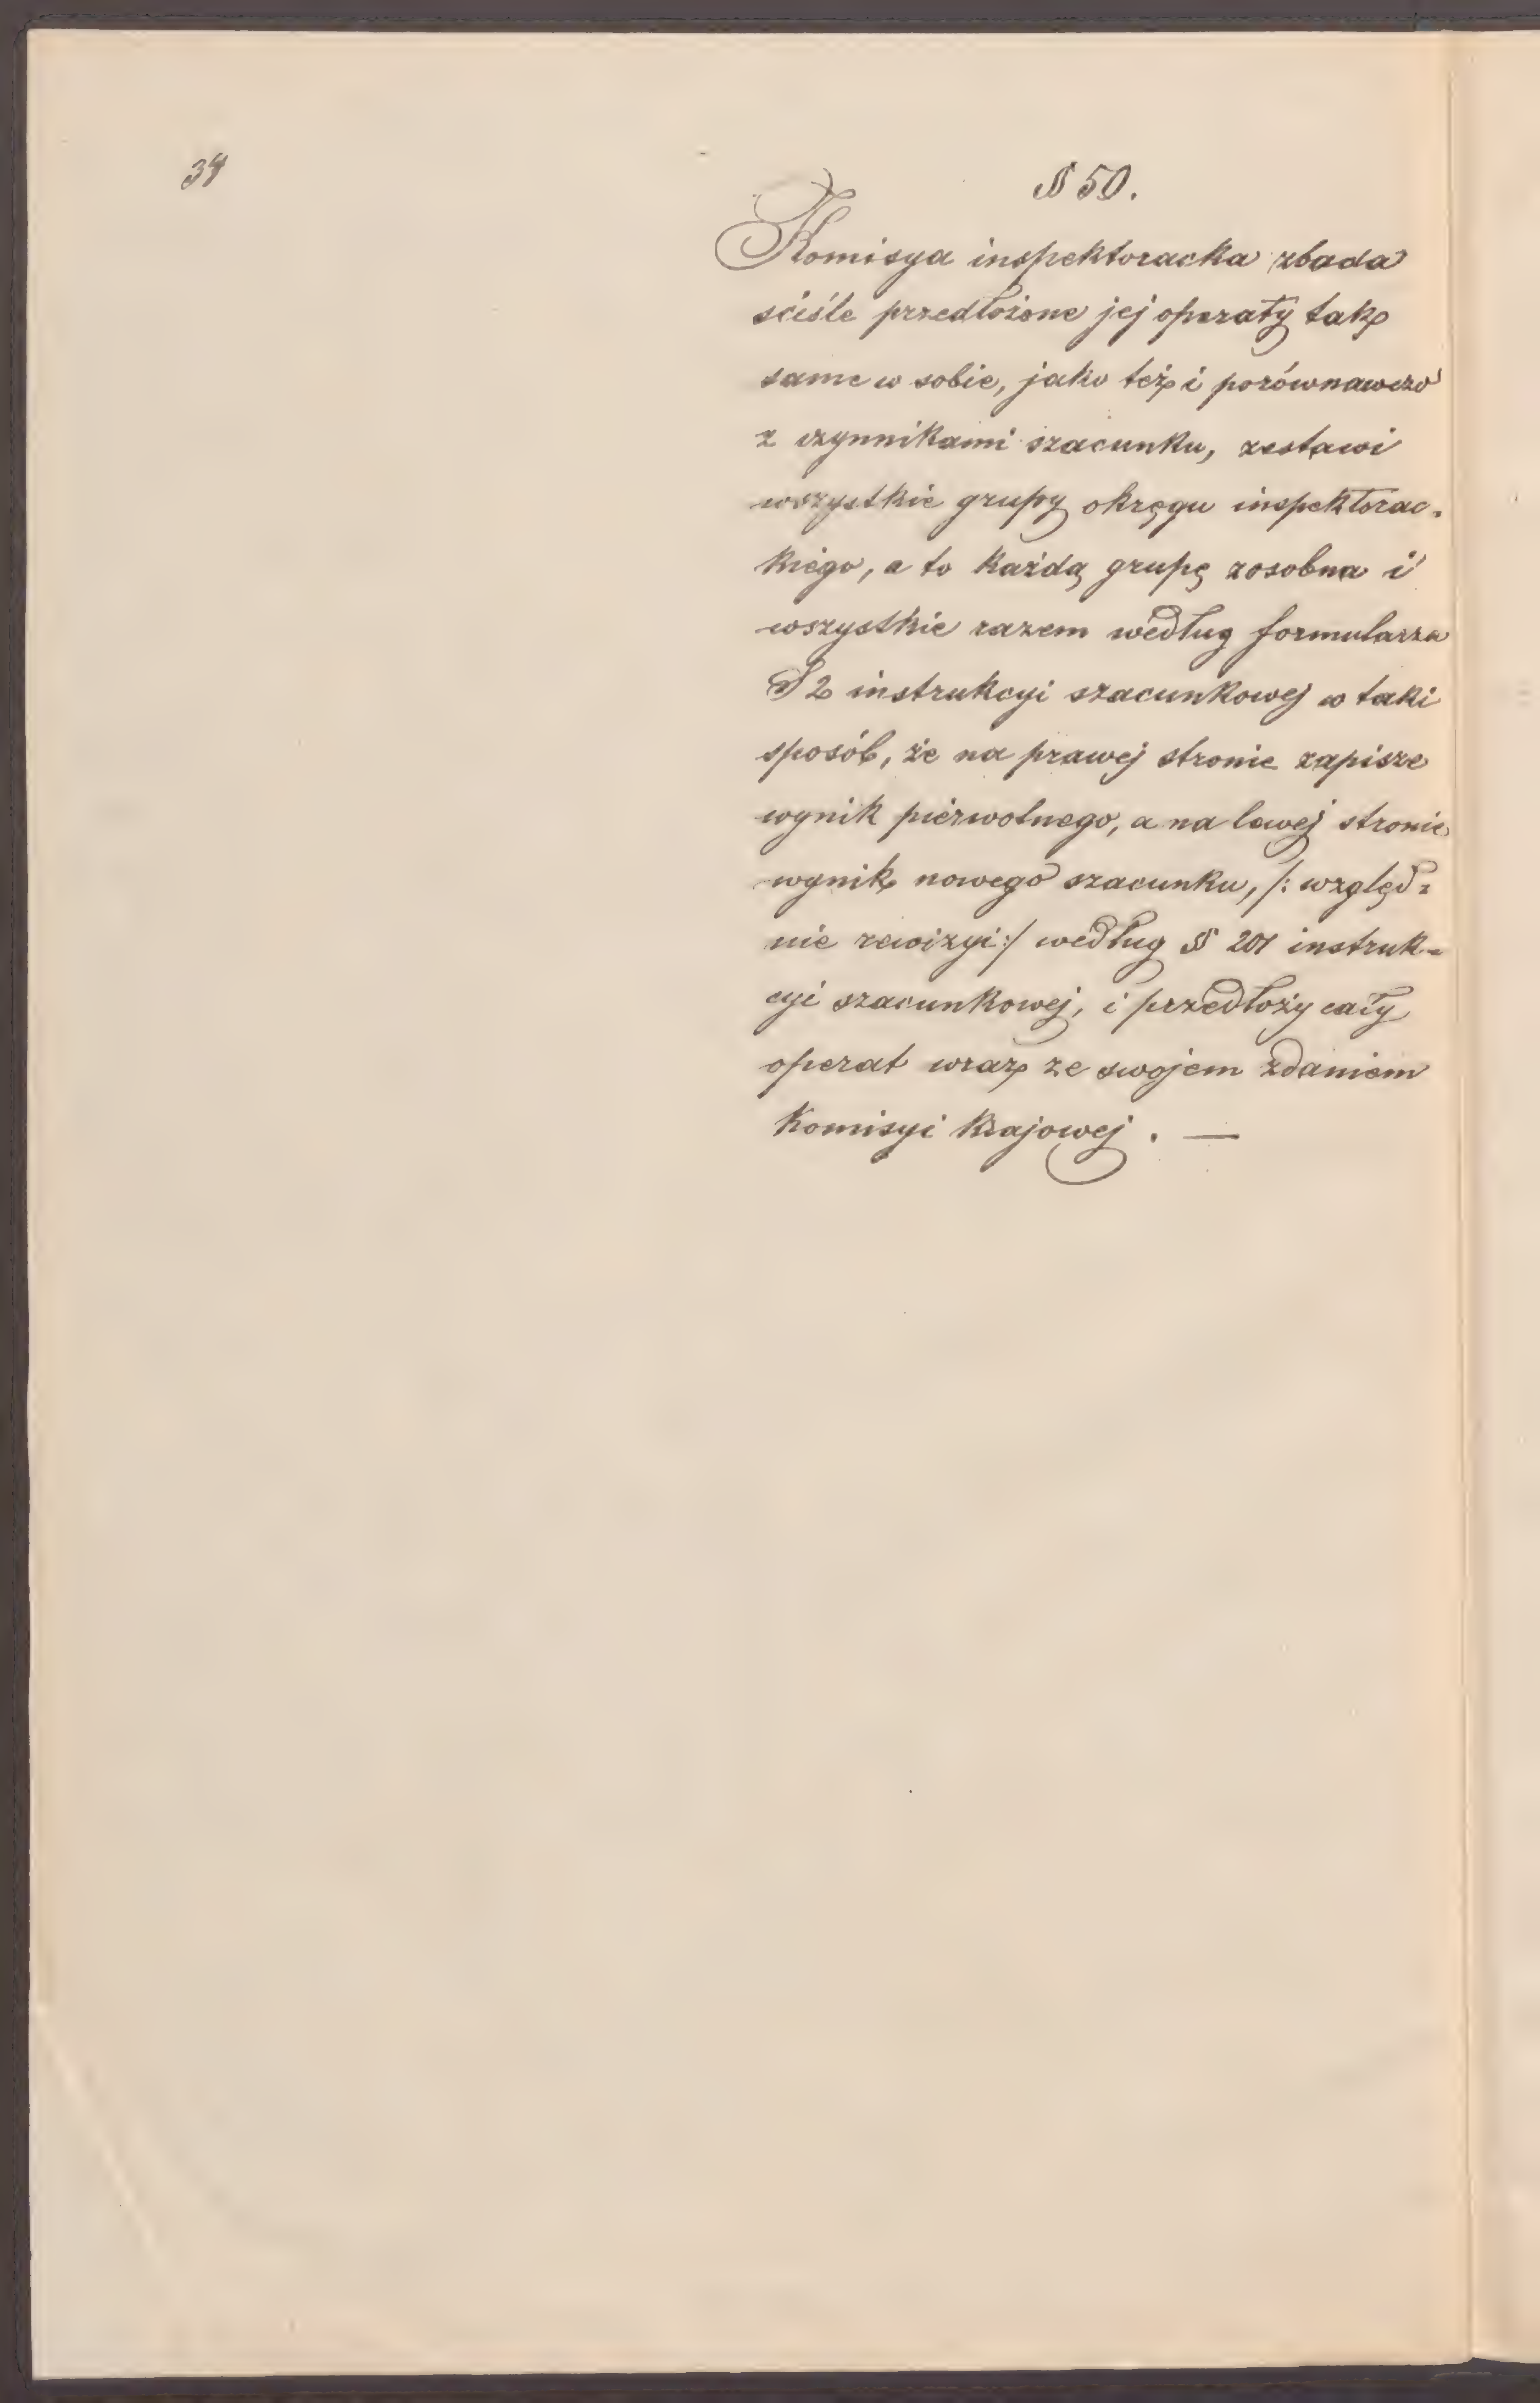 34
§ 50.
Komisya inspektoracka zbada
ściśle przedłożone jej operaty tak
same w sobie, jako też i porównawczo
z czynnikami szacunku, zestawi
wszystkie grupy okręgu inspektorac-
kiego, a to każdą grupę zosobna i
wszystkie razem według formularza
S 2 instrukcyi szacunkowej w taki
sposób, że na prawej stronie zapisze
wynik pierwotnego, a na lewej stronie
wynik nowego szacunku, /: względ=
nie rewizyi :/ według § 201 instruk-
cyi szacunkowej, i przedłoży cały
operat wraz ze swojem zdaniem
Komisyi Krajowej . —